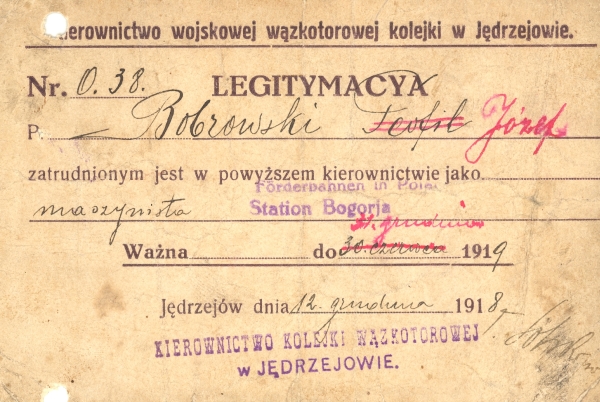 Kierownictwo wojskowej wązkotorowej kolejki w Jędrzejowie.
Nr. 0.38. LEGITYMACYA
P. Bobrowski Teofil Józef
zatrudnionym jest w powyższem kierownictwie jako
Förderbahnen in Pole
maszynista Station Bogorja
31. grudnia
Ważna do 30. czerwca 1919
Jędrzejów dnia 12. grudnia 1918
KIEROWNICTWO KOLEJKI WĄZKOTOROWEJ
w JĘDRZEJOWIE.